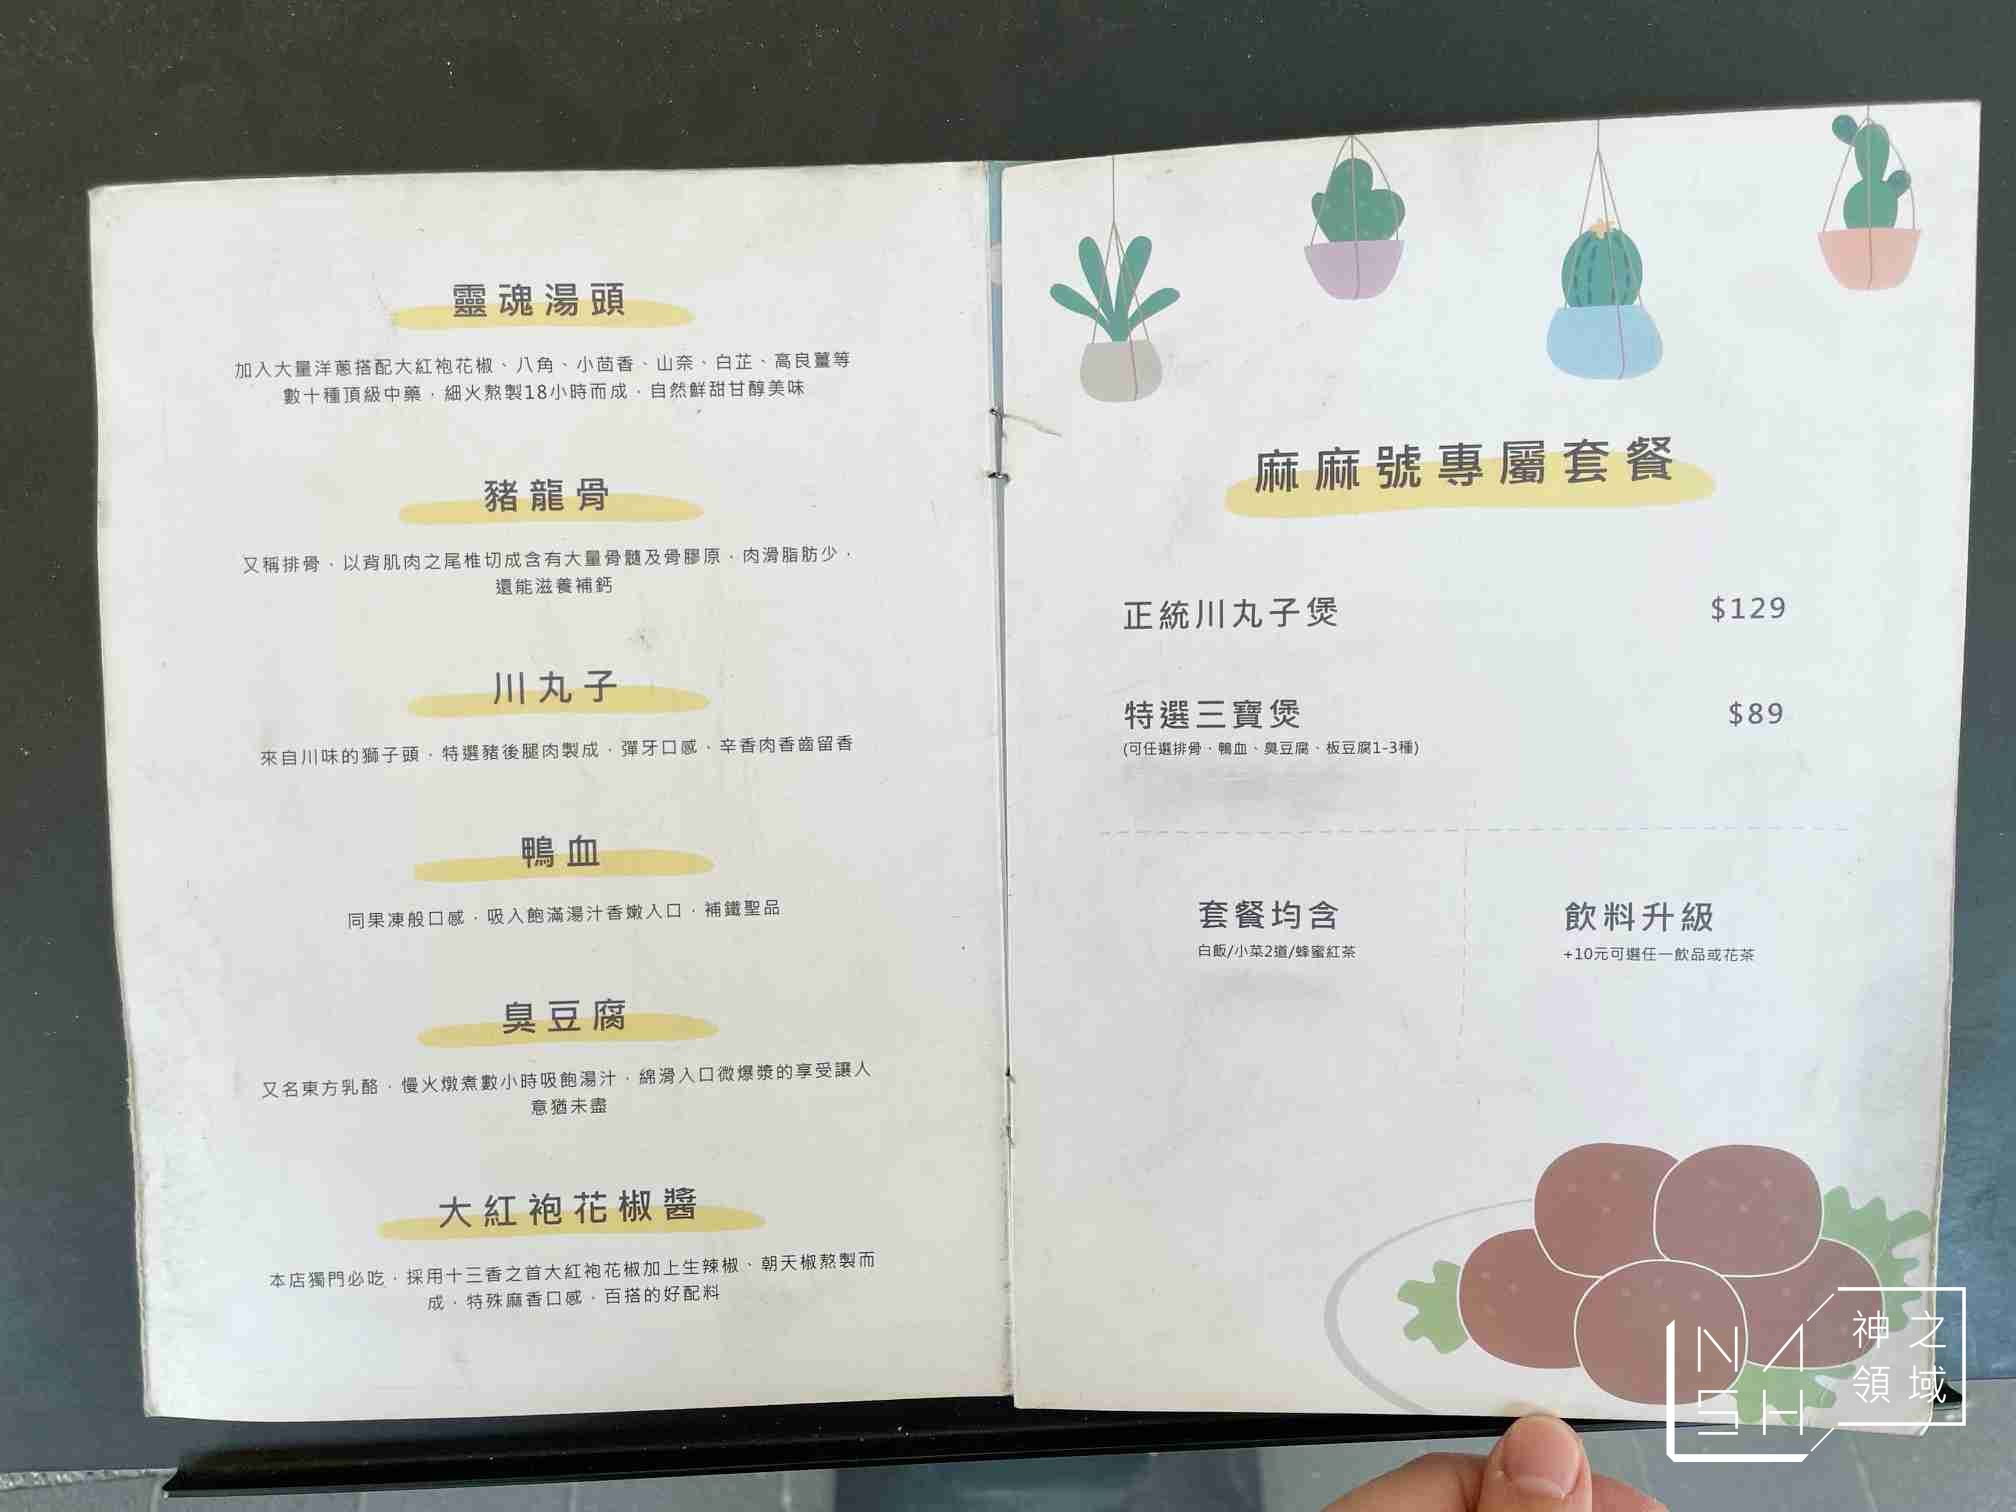 靈魂湯頭
加入大量洋蔥搭配大紅袍花椒、八角、小茴香、山奈、白芷、高良薑等
數十種頂級中藥，細火熬製18小時而成，自然鮮甜甘醇美味
豬龍骨
又稱排骨，以背肌肉之尾椎切成含有大量骨髓及骨膠原，肉滑脂肪少，
還能滋養補鈣
川丸子
來自川味的獅子頭，特選豬後腿肉製成，彈牙口感、辛香肉香齒留香
鴨血
同果凍般口感，吸入飽滿湯汁香嫩入口，補鐵聖品
臭豆腐
又名東方乳酪，慢火燉煮數小時吸飽湯汁，綿滑入口微爆漿的享受讓人
意猶未盡
大紅袍花椒醬
本店獨門必吃，採用十三香之首大紅袍花椒加上生辣椒、朝天椒熬製而
成，特殊麻香口感，百搭的好配料
麻麻號專屬套餐
正統川丸子煲 $129
特選三寶煲 $89
(可任選排骨、鴨血、臭豆腐、板豆腐1-3種)
套餐均含
白飯/小菜2道/蜂蜜紅茶
飲料升級
+10元可選任一飲品或花茶
NASH
神之
領域